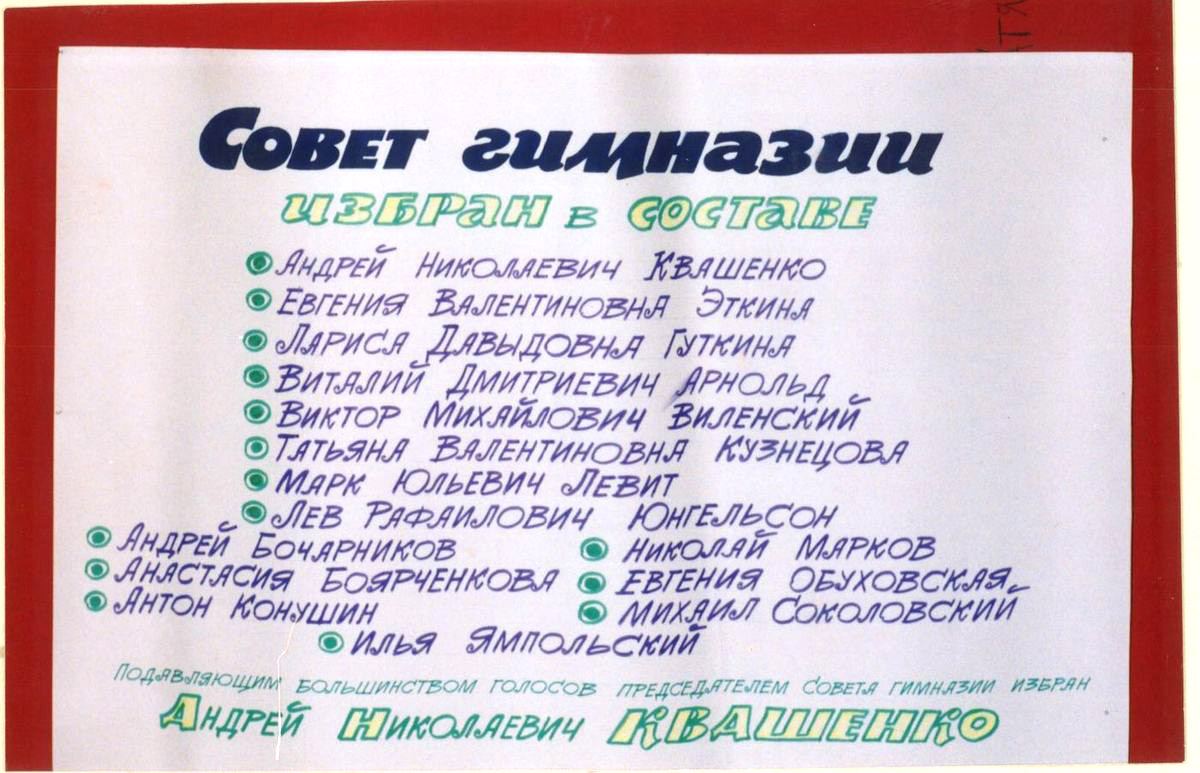 Совет гимназии
избран в составе
Андрей Николаевич Квашенко
Евгения Валентиновна Эткина
Лариса Давыдовна Гуткина
Виталий Дмитриевич Арнольд
Виктор Михайлович Виленский
Татьяна Валентиновна Кузнецова
Марк Юльевич Левит
Лев Рафаилович Юнгельсон
Андрей Бочарников
Анастасия Боярченкова
Антон Конушин
Николай Марков
Евгения Обуховская
Михаил Соколовский
Илья Ямпольский
Подавляющим большинством голосов председателем Совета гимназии избран
Андрей Николаевич КВАШЕНКО